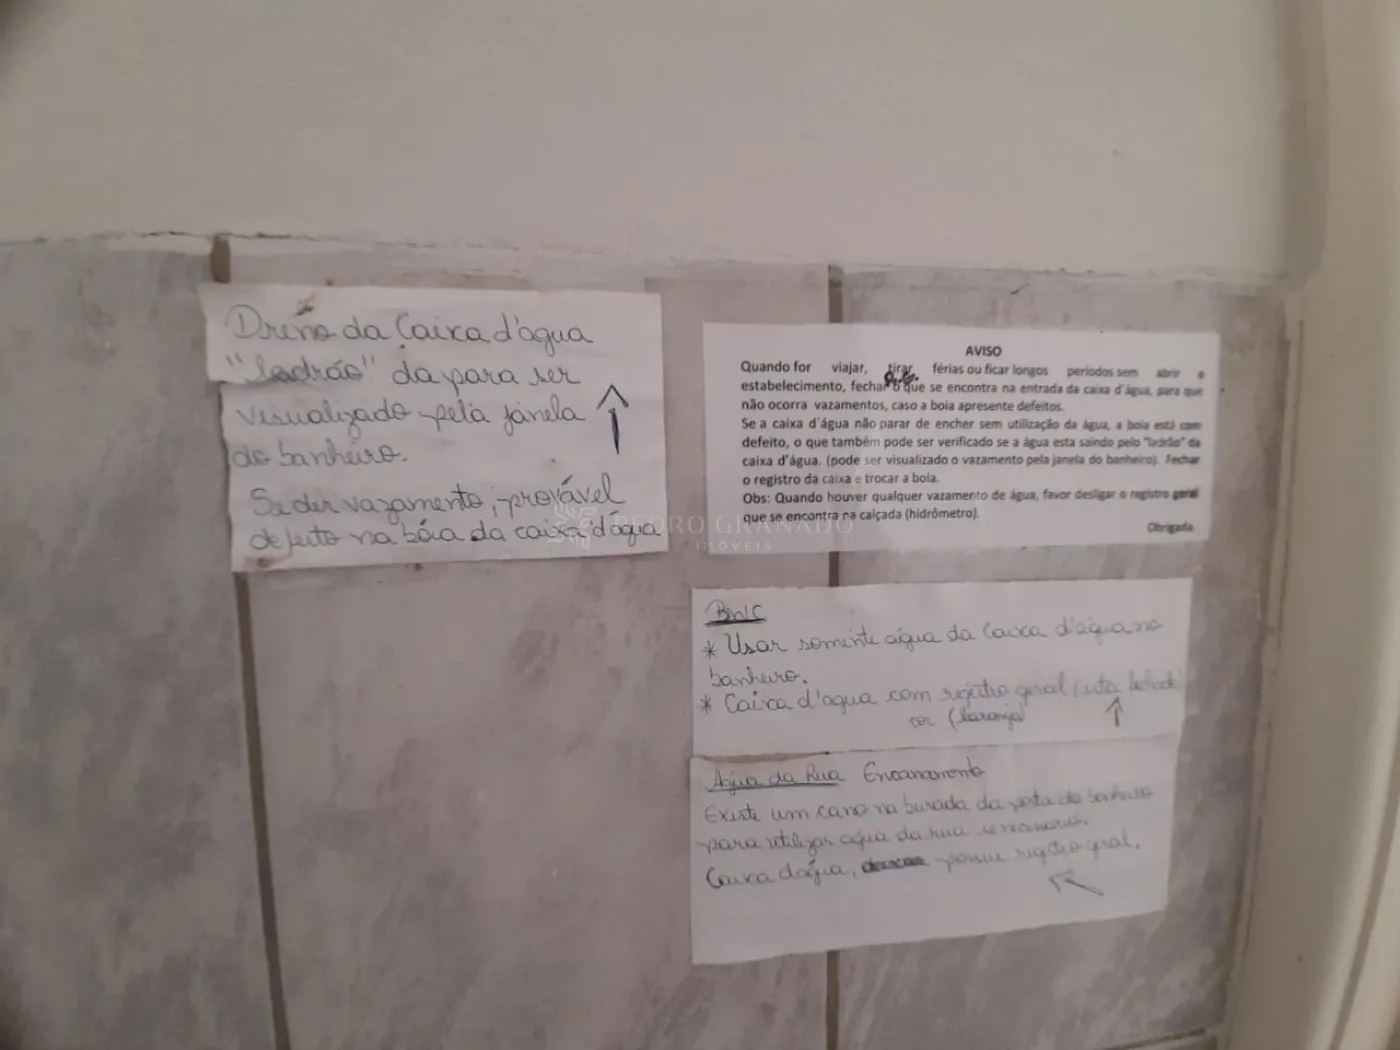 Dreno da Caixa d'água
"ladrão" da para ser
visualizado pela janela
do banheiro.
Se der vazamento, provável
defeito na bóia da caixa d'água
AVISO
Quando for viajar, tirar férias ou ficar longos períodos sem abrir o
estabelecimento, fechar o que se encontra na entrada da caixa d'água, para que
não ocorra vazamentos, caso a boia apresente defeitos.
Se a caixa d'água não parar de encher sem utilização da água, a boia está com
defeito, o que também pode ser verificado se a água esta saindo pelo "ladrão" da
caixa d'água. (pode ser visualizado o vazamento pela janela do banheiro). Fechar
o registro da caixa e trocar a boia.
Obs: Quando houver qualquer vazamento de água, favor desligar o registro geral
que se encontra na calçada (hidrômetro).
Obrigada
PEDRO GRANADO
IMÓVEIS
BWC
* Usar somente água da Caixa d'água no
banheiro.
* Caixa d'água com registro geral (esta fechado)
cor (laranja)
Água da Rua Encanamento
Existe um cano na da porta do banheiro
para utilizar água da rua se necessário.
Caixa d'água, possue registro geral.